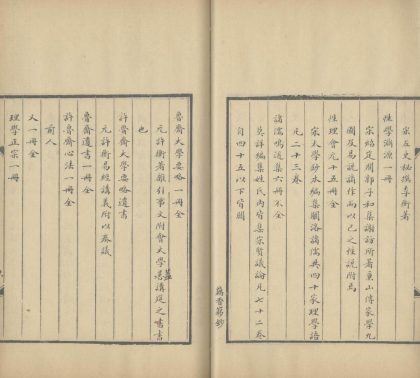 宋左史秘撰李衡著
性學淵源一冊
宋 定閒郭子和集謝 所著兼山傳家學九
圖及易說論作而以己之性說附焉
性理會元十五冊全
宋太學鈔本編集關洛諸儒共四十家理學語
凡二十三卷
諸儒鳴道集六冊不全
莫詳編集姓氏內皆集宋賢議論凡七十二卷
自四十五以下皆闕
藕香簃鈔
魯齋大學要略一冊全
元許衡著類引事文附會大學蓋講筵之書
也
許魯齋大學要略遺書
元許衡易經講義附以奏議
魯齋遺書一冊全
許魯齋心法一冊全
前人
又一冊全
理學正宗一冊